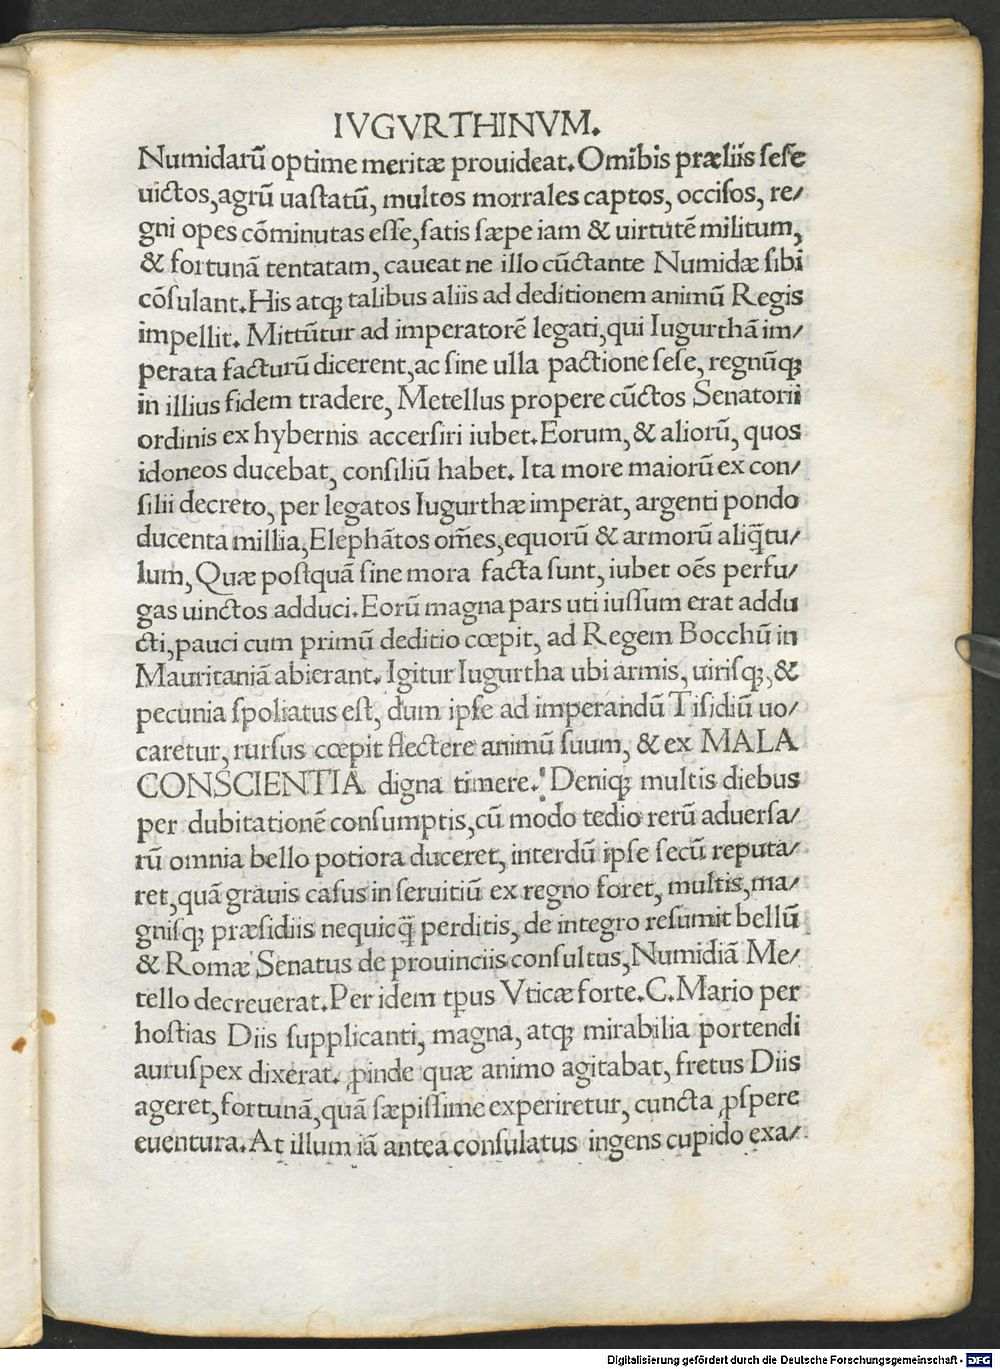 IVGVRTHINVM.
Numidarū optime meritæ prouideat. Omībis præliis ſeſe
uictos, agrū uaſtatū, multos morrales captos, occiſos, re/
gni opes cōminutas eſſe, ſatis ſæpe iam & uirtutē militum,
& fortunā tentatam, caueat ne illo cūctante Numidæ ſibi
cōſulant. His atq; talibus aliis ad deditionem animū Regis
impellit. Mittūtur ad imperatorē legati, qui Iugurthā im/
perata facturū dicerent, ac ſine ulla pactione ſeſe, regnūq;
in illius fidem tradere, Metellus propere cūctos Senatorii
ordinis ex hybernis accerſiri iubet. Eorum, & aliorū, quos
idoneos ducebat, conſiliū habet. Ita more maiorū ex con/
ſilii decreto, per legatos Iugurthæ imperat, argenti pondo
ducenta millia, Elephātos om̄es, equorū & armorū aliq̄tu/
lum, Quæ poſtquā ſine mora facta ſunt, iubet oēs perfu/
gas uinctos adduci. Eorū magna pars uti iuſſum erat addu
cti, pauci cum primū deditio cœpit, ad Regem Bocchū in
Mauritaniā abierant. Igitur Iugurtha ubi armis, uiriſq;, &
pecunia ſpoliatus eſt, dum ipſe ad imperandū Tiſidiū uo/
caretur, rurſus cœpit flectere animū ſuum, & ex MALA
CONSCIENTIA digna timere. Deniq; multis diebus
per dubitationē conſumptis, cū modo tedio rerū aduerſa/
rū omnia bello potiora duceret, interdū ipſe ſecū reputa/
ret, quā grauis caſus in ſeruitiū ex regno foret, multis, ma/
gniſq; præſidiis nequicq̄ perditis, de integro reſumit bellū
& Romæ Senatus de prouinciis conſultus, Numidiā Me/
tello decreuerat. Per idem tp̄us Vticæ forte. C. Mario per
hoſtias Diis ſupplicanti, magna, atq; mirabilia portendi
auruſpex dixerat. ꝓinde quæ animo agitabat, fretus Diis
ageret, fortunā, quā ſæpiſſime experiretur, cuncta ꝓſpere
euentura. At illum iā antea conſulatus ingens cupido exa/
Digitalisierung gefördert durch die Deutsche Forschungsgemeinschaft - DFG